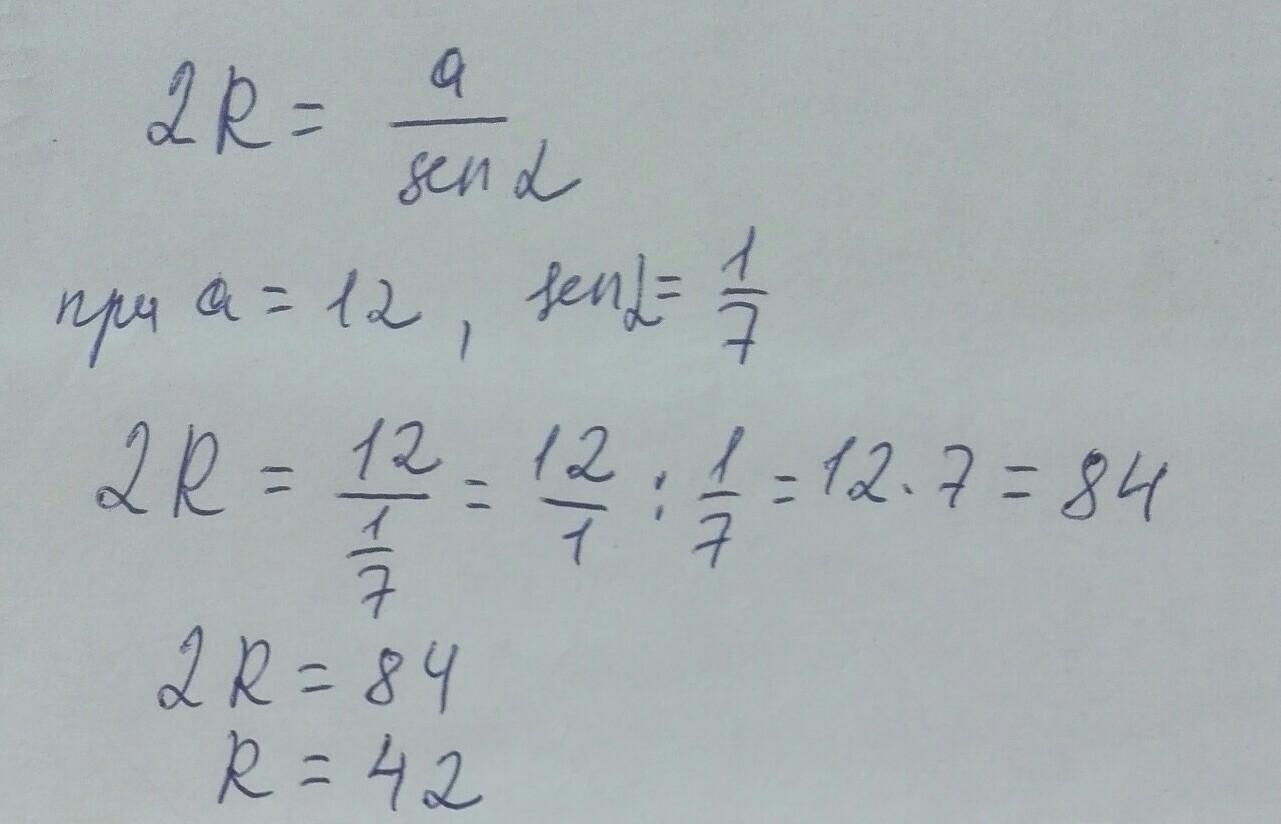 2R = a/sin α
при a = 12, sin α = 1/7
2R = 12/(1/7) = 12/1 : 1/7 = 12 · 7 = 84
2R = 84
R = 42